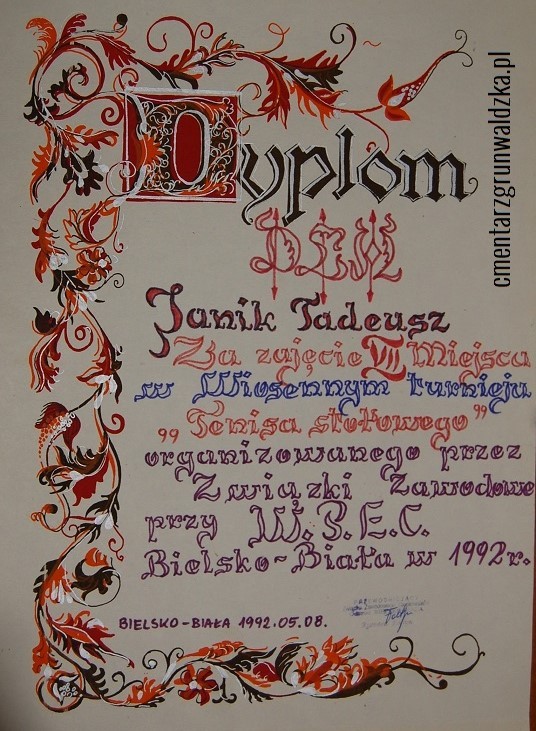 Dyplom
DLA
Janik Tadeusz
Za zajęcie VI Miejsca
w Wiosennym turnieju
„Tenisa stołowego”
organizowanego przez
Związki Zawodowe
przy W.P.E.C.
Bielsko-Biała w 1992 r.
BIELSKO-BIAŁA 1992.05.08.
PRZEWODNICZĄCY
cmentarzgrunwaldzka.pl